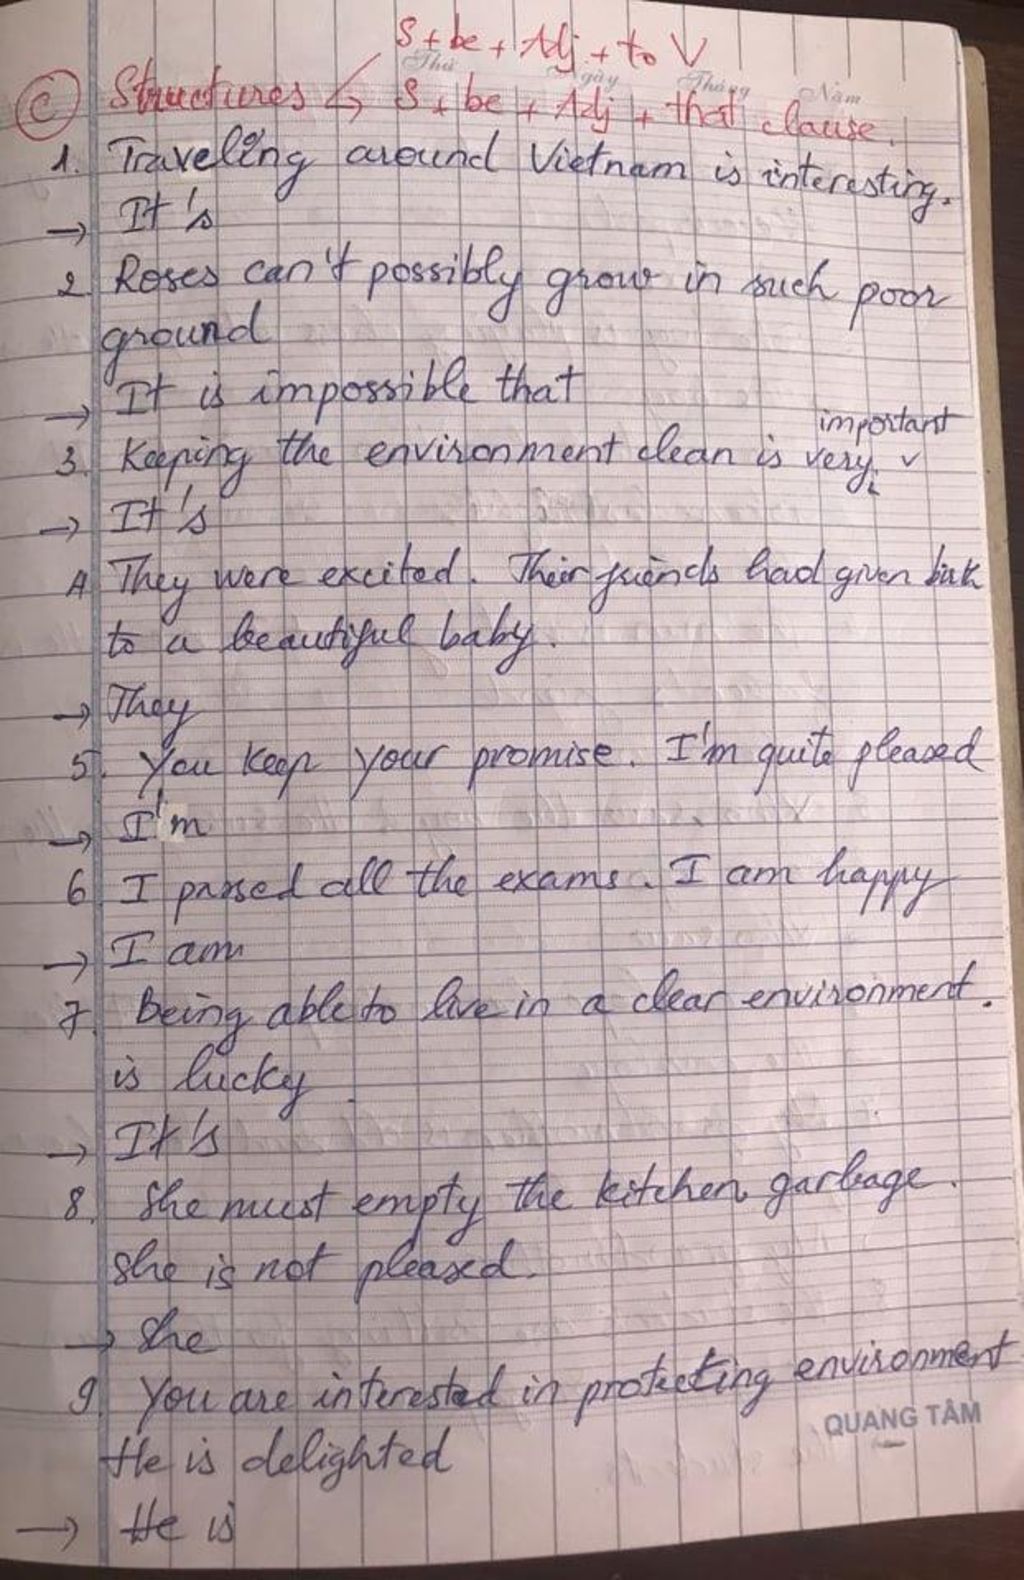 S + be + Adj + to V
Thứ Ngày Tháng Năm
C Structures S + be + Adj + that clause.
1. Traveling around Vietnam is interesting.
→ It's
2. Roses can't possibly grow in such poor
ground
→ It is impossible that
important
3. Keeping the environment clean is very
→ It's
4 They were excited. Their friends had given
to a beautiful baby.
→ They
5. You keep your promise. I'm quite pleased
→ I'm
6 I passed all the exams. I am happy
→ I am
7. Being able to live in a clean environment.
is lucky
→ It's
8. She must empty the kitchen garbage.
she is not pleased.
→ she
9. You are interested in protecting environment
QUANG TÂM
He is delighted
→ He is